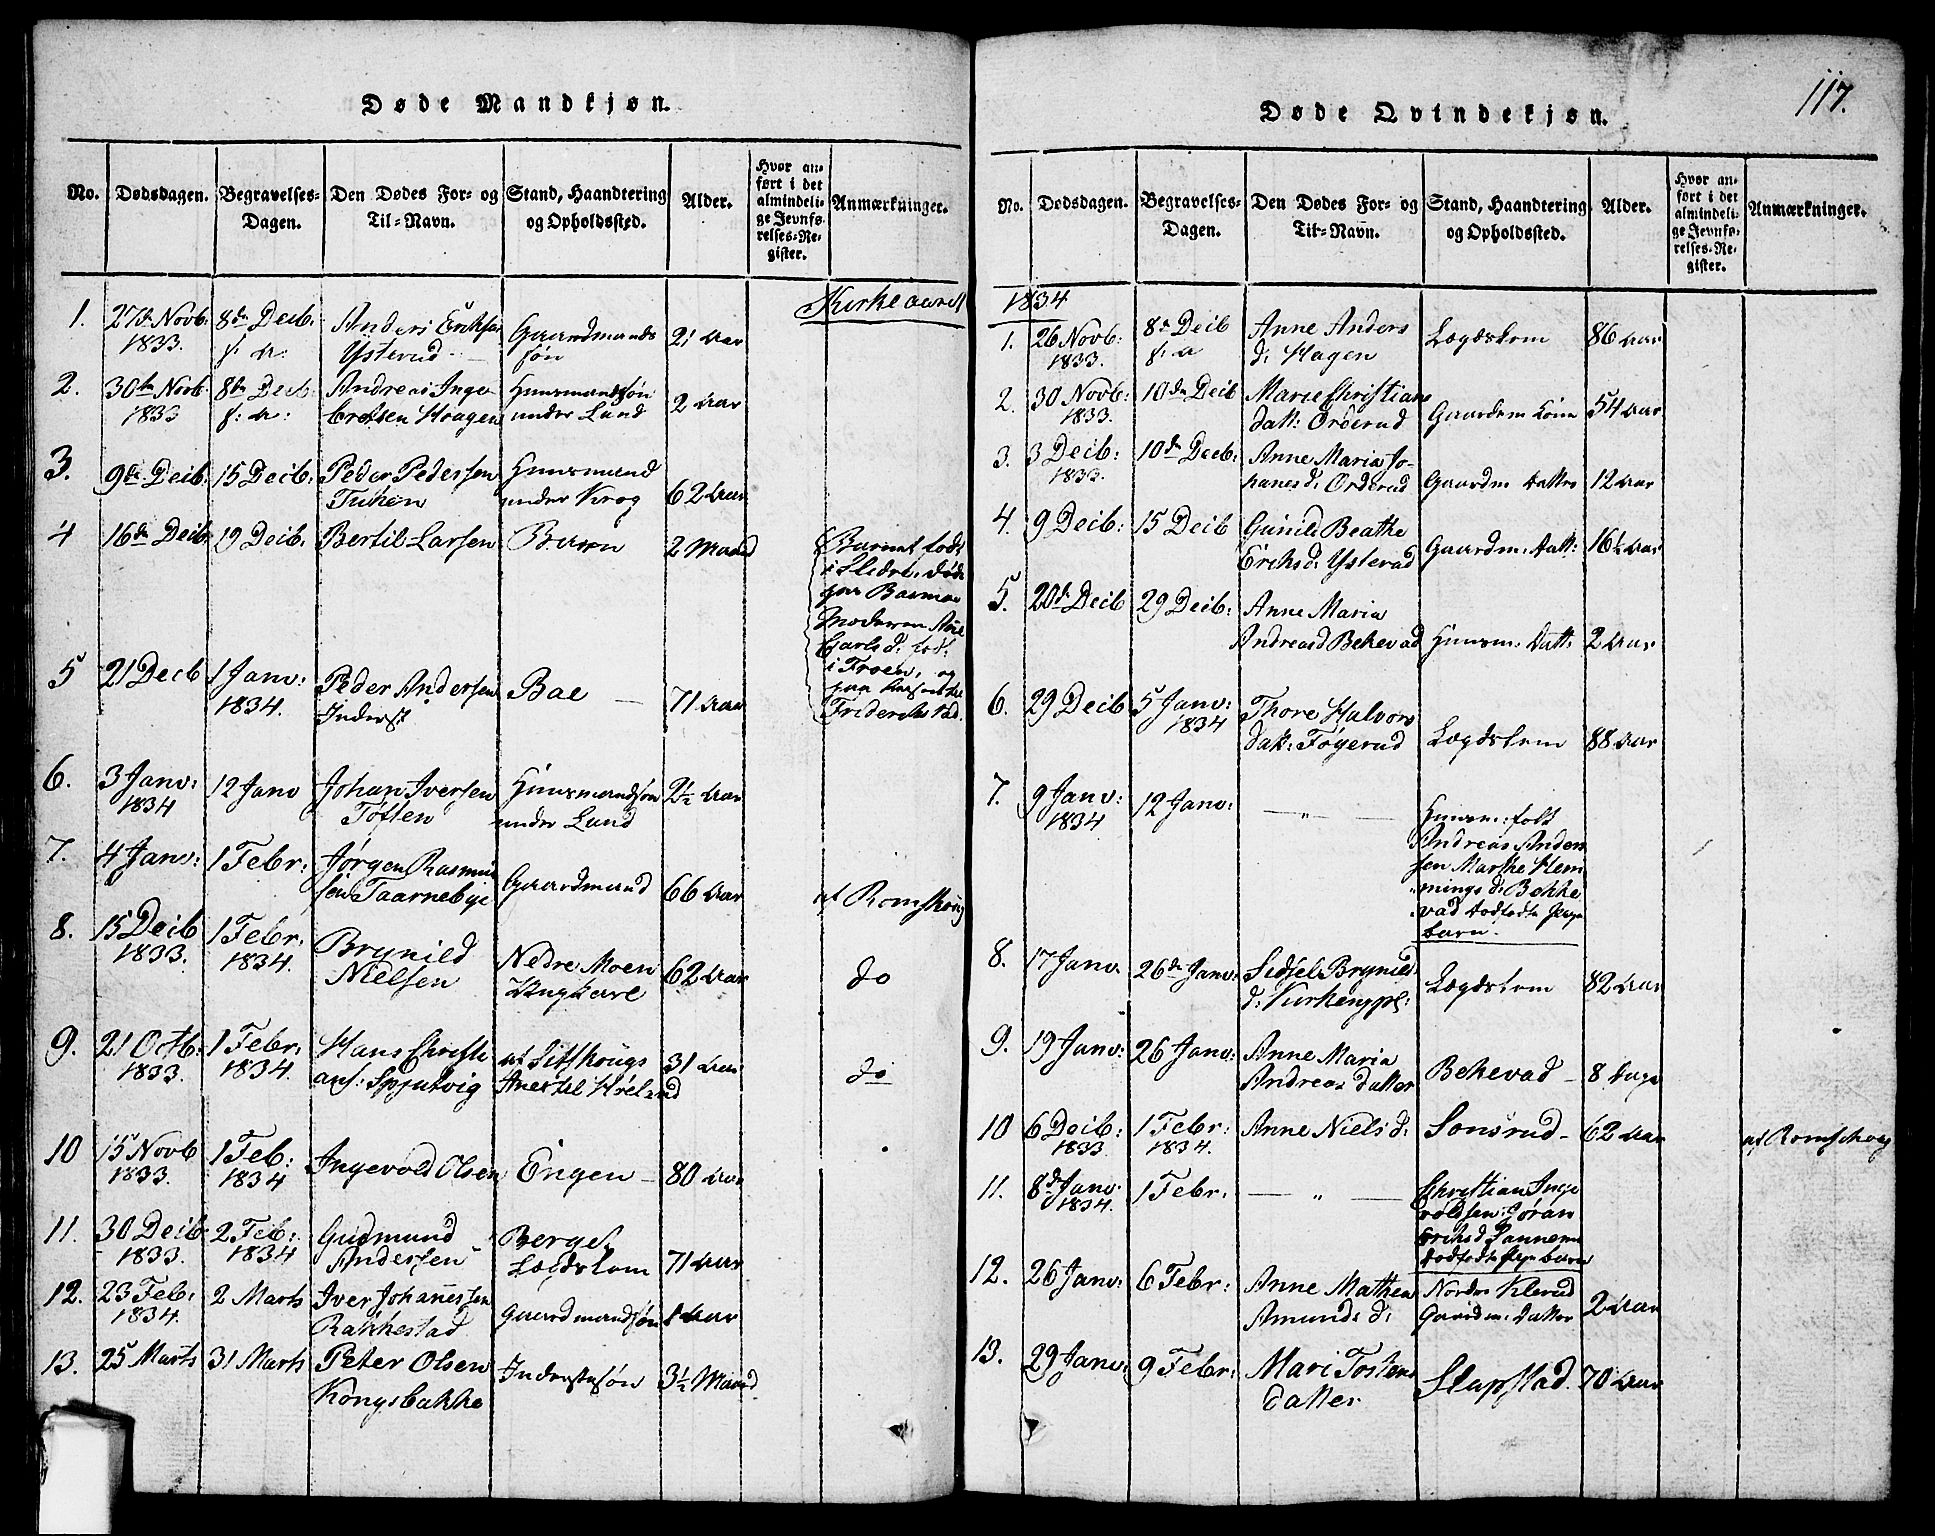 Døde Mandkjøn.
No. Dødsdagen. Begravelses-Dagen. Den Dødes For- og Til-Navn. Stand, Haandtering og Opholdssted. Alder. Hvor anført i det almindelige Jevnførelses-Register. Anmærkninger.
Kirkeaaret
1. 27de Novb: 8de Decb: Anders Eriksen Gaardmands 2½ Aar
1833. f: a: Ysterud søn
2. 30te Novb. 8de Decb: Andreas Inge- Huusmandssøn 2 Aar
1833 f: a: bretsen Haagen under Lund
3. 9de Decb: 15 Decb: Peder Pedersen Huusmand
under Krog 62 Aar
4 16de Decb. 19 Decb: Bertil Larsen Barn 2 Maaned
Barnet født
i Slidre, døde
paa Basmoe
Moderen
Carlsd: fød:
i Troen, og
Friderichstad.
5 21 Decb 1 Janv: Peder Andersen Bae 71 Aar
1834. Inderst
6. 3 Janv: 12 Janv Johan Iversen Huusmandssøn 2½ Aar
1834 Toften under Lund
7. 4 Janv: 1 Febr: Jørgen Rasmus
sen Taarnebye Gaardmand 66 Aar af Romskoug
8. 15 Decb 1 Febr: Brynild Nedre Moen 62 Aar do
1833. 1834. Nielsen Ungkarl
9. 21 Octb: 1 Febr: Hans Christi 31 Aar do
1833. 1834. ans: Spjutvig
10 15 Novb 1 Feb: Ingevold Olsen Engen 80 Aar
1833. 1834
11. 30 Decb. 2 Feb: Gudmund Berget
1833. 1834 Andersen Lægdslem 71 Aar
12. 23 Feb: 2 Marts Iver Johannessen
1834. Rakkestad Gaardmandssøn 1 Aar
13. 25 Marts 31 Marts Peter Olsen Inderstesøn 3½ Maaned
Kongsbakke
117.
Døde Qvindekjøn.
No. Dødsdagen. Begravelses-Dagen. Den Dødes For- og Til-Navn. Stand, Haandtering og Opholdssted. Alder. Hvor anført i det almindelige Jevnførelses-Register. Anmærkninger.
1834
1. 26 Novb: 8de Decb Anne Anders Lægdslem 86 Aar
1833. f: a d: Hagen
2. 30 Novb: 10de Decb Marie Christians
1833. datt: Orderud Gaardm Kone 54 Aar
3. 3 Decb: 10de Decb: Anne Maria Jo-
1833. hanes d: Orderud Gaardm Datter 12 Aar
4. 9 Decb: 15 Decb Gunild Beathe
Eriks d: Ysterud Gaardm: Datt: 16½ Aar
5. 20de Decb 29 Decb: Anne Maria
Andreasd Bekevad Huusm: Datt: 2 Aar
6. 29 Decb 5 Janv: Thore Halvors
1834 datt: Togerud Lægdslem 88 Aar
7. 9 Janv: 12 Janv: — " —
1834 Huusm: folk
Andreas Ander
sen Marthe Hem
mings d: Bekke
vad dødfødte Pige
barn.
8. 17 Janv. 26de Janv: Sidsel Brynild
d: Lægdslem 82 Aar
9. 19 Janv: 26 Janv: Anne Maria
Andreas datter Bekevad — 8 Dage
10 6 Decb: 1 Febr: Anne Niels d: Sonsrud — 62 Aar af Romschoug
1833 1834.
11. 8de Janv: 1 Febr: — " — Christian Inge
1834. voldsen: Gøran
Eriks d
dødfødte Pigebarn
12. 26 Janv: 6 Febr: Anne Mathea Nordre Klerud
Amunds d: Gaardm: Datter 2 Aar
13. 29 Janv: 9 Febr: Mari Tostens Slupstad. 70 Aar
Datter